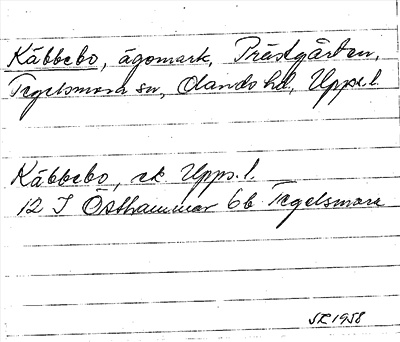 Käbbebo, ägomark, Prästgården,
Tegelsmora sn, Olands hd, Upps.l.
Käbbebo, ek Upps.l.
12 I Östhammar 6b Tegelsmora
SR 1958